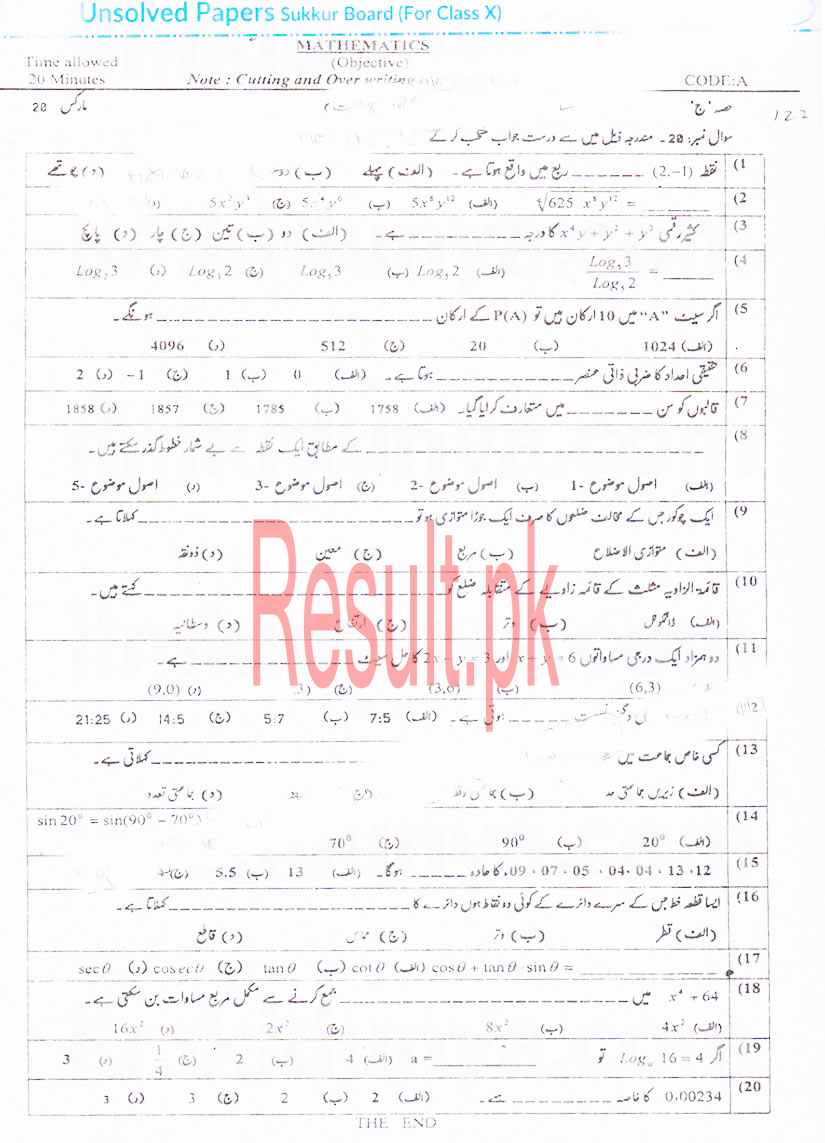 Unsolved Papers Sukkur Board (For Class X)
MATHEMATICS
Time allowed (Objective)
20 Minutes Note : Cutting and Over writing CODE:A
حصہ "ج" مارکس 20
سوال نمبر: 20۔ مندرجہ ذیل میں سے درست جواب منتخب کر کے
(1 نقطہ (2,-1) _______ ربع میں واقع ہوتا ہے۔ (الف) پہلے (ب) (د) چوتھے
(2 ∜625 x⁸y¹² = _______ (الف) 5x⁸y¹² (ب) (ج) (د)
(3 کثیر رقمی x⁴y + y² + y³ کا درجہ _______ ہے۔ (الف) دو (ب) تین (ج) چار (د) پانچ
(4 = _______ (الف) (ب) (ج) (د)
(5 اگر سیٹ "A" میں 10 ارکان ہیں تو P(A) کے ارکان _______ ہونگے۔
(الف) 1024 (ب) 20 (ج) 512 (د) 4096
(6 حقیقی اعداد کا ضربی ذاتی عنصر _______ ہوتا ہے۔ (الف) 0 (ب) 1 (ج) -1 (د) 2
(7 قالبوں کو سن _______ میں متعارف کرایا گیا۔ (الف) 1758 (ب) 1785 (ج) 1857 (د) 1858
(8 _______ کے مطابق ایک نقطہ سے بے شمار خطوط گذر سکتے ہیں۔
(الف) اصول موضوع -1 (ب) اصول موضوع -2 (ج) اصول موضوع -3 (د) اصول موضوع -5
(9 ایک چوکور جس کے مخالف ضلعوں کا صرف ایک جوڑا متوازی ہو تو _______ کہلاتا ہے۔
(الف) متوازی الاضلاع (ب) مربع (ج) معین (د) ذوزنقہ
(10 قائمۃ الزاویہ مثلث کے قائمہ زاویے کے متقابلہ ضلع کو _______ کہتے ہیں۔
(الف) (ب) وتر (ج) ارتفاع (د) وسطانیہ
(11 دو ہمزاد ایک درجی مساواتوں x - y = 6 اور 2x - y = 3 کا حل سیٹ _______ ہے۔
(6,3) (ب) (3,6) (ج) (د) (9,0)
_______ ہوتی ہے۔ (الف) 7:5 (ب) 5:7 (ج) 14:5 (د) 21:25
(13 کسی خاص جماعت میں _______ کہلاتی ہے۔
(الف) زیریں جماعتی حد (ب) (ج) (د) جماعتی تعدد
(14 sin 20° = sin(90° − 70°)
(الف) 20° (ب) 90° (ج) 70°
(15 12، 13، 04، 04، 05، 07، 09 کا عادہ _______ ہوگا۔ (الف) 13 (ب) 5.5 (ج) 4
(16 ایسا قطعہ خط جس کے سرے دائرے کے کوئی دو نقاط ہوں دائرے کا _______ کہلاتا ہے۔
(الف) قطر (ب) وتر (ج) مماس (د) قاطع
(17 cosθ + tanθ · sinθ = _______ (الف) cotθ (ب) tanθ (ج) cosecθ (د) secθ
(18 x⁴ + 64 میں _______ جمع کرنے سے مکمل مربع مساوات بن سکتی ہے۔
(الف) 4x² (ب) 8x² (ج) 2x² (د) 16x²
(19 اگر Logₐ 16 = 4 تو a = _______ (الف) 4 (ب) 2 (ج) 1/4 (د) 3
(20 0.00234 کا خاصہ _______ ہے۔ (الف) 2 (ب) 2 (ج) 3 (د) 3
THE END
Result.pk